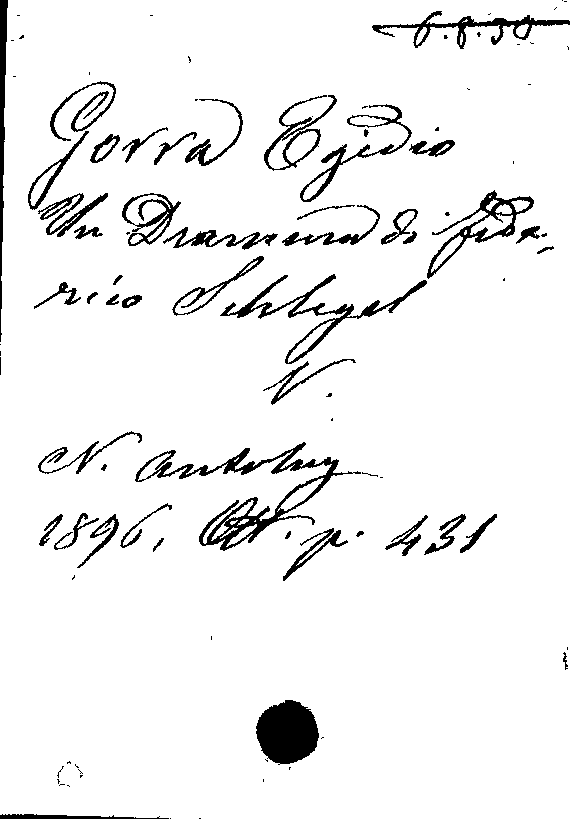 6.8.38
Gorra Egidio
Un Dramma di Fede-
rico Schlegel
V.
N. Antolog
1896, p. 431